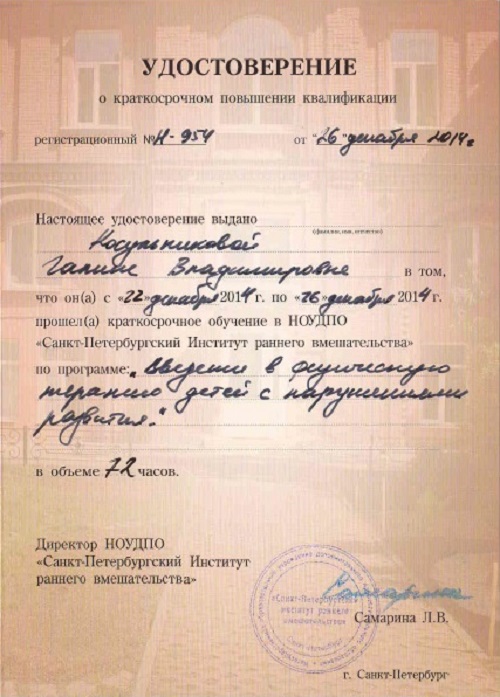 УДОСТОВЕРЕНИЕ
о краткосрочном повышении квалификации
регистрационный № Н-954 от "26" декабря 2014г
Настоящее удостоверение выдано
(фамилия, имя, отчество)
Косульниковой
Галине Владимировне в том,
что он(а) с «22» декабря 2014 г. по «26» декабря 2014 г.
прошел(а) краткосрочное обучение в НОУДПО
«Санкт-Петербургский Институт раннего вмешательства»
по программе: „Введение в физическую
терапию детей с нарушениями
развития."
в объеме 72 часов.
Директор НОУДПО
«Санкт-Петербургский Институт
раннего вмешательства»
«Санкт-Петербургский
институт раннего
вмешательства»
Самарина Л.В.
г. Санкт-Петербург